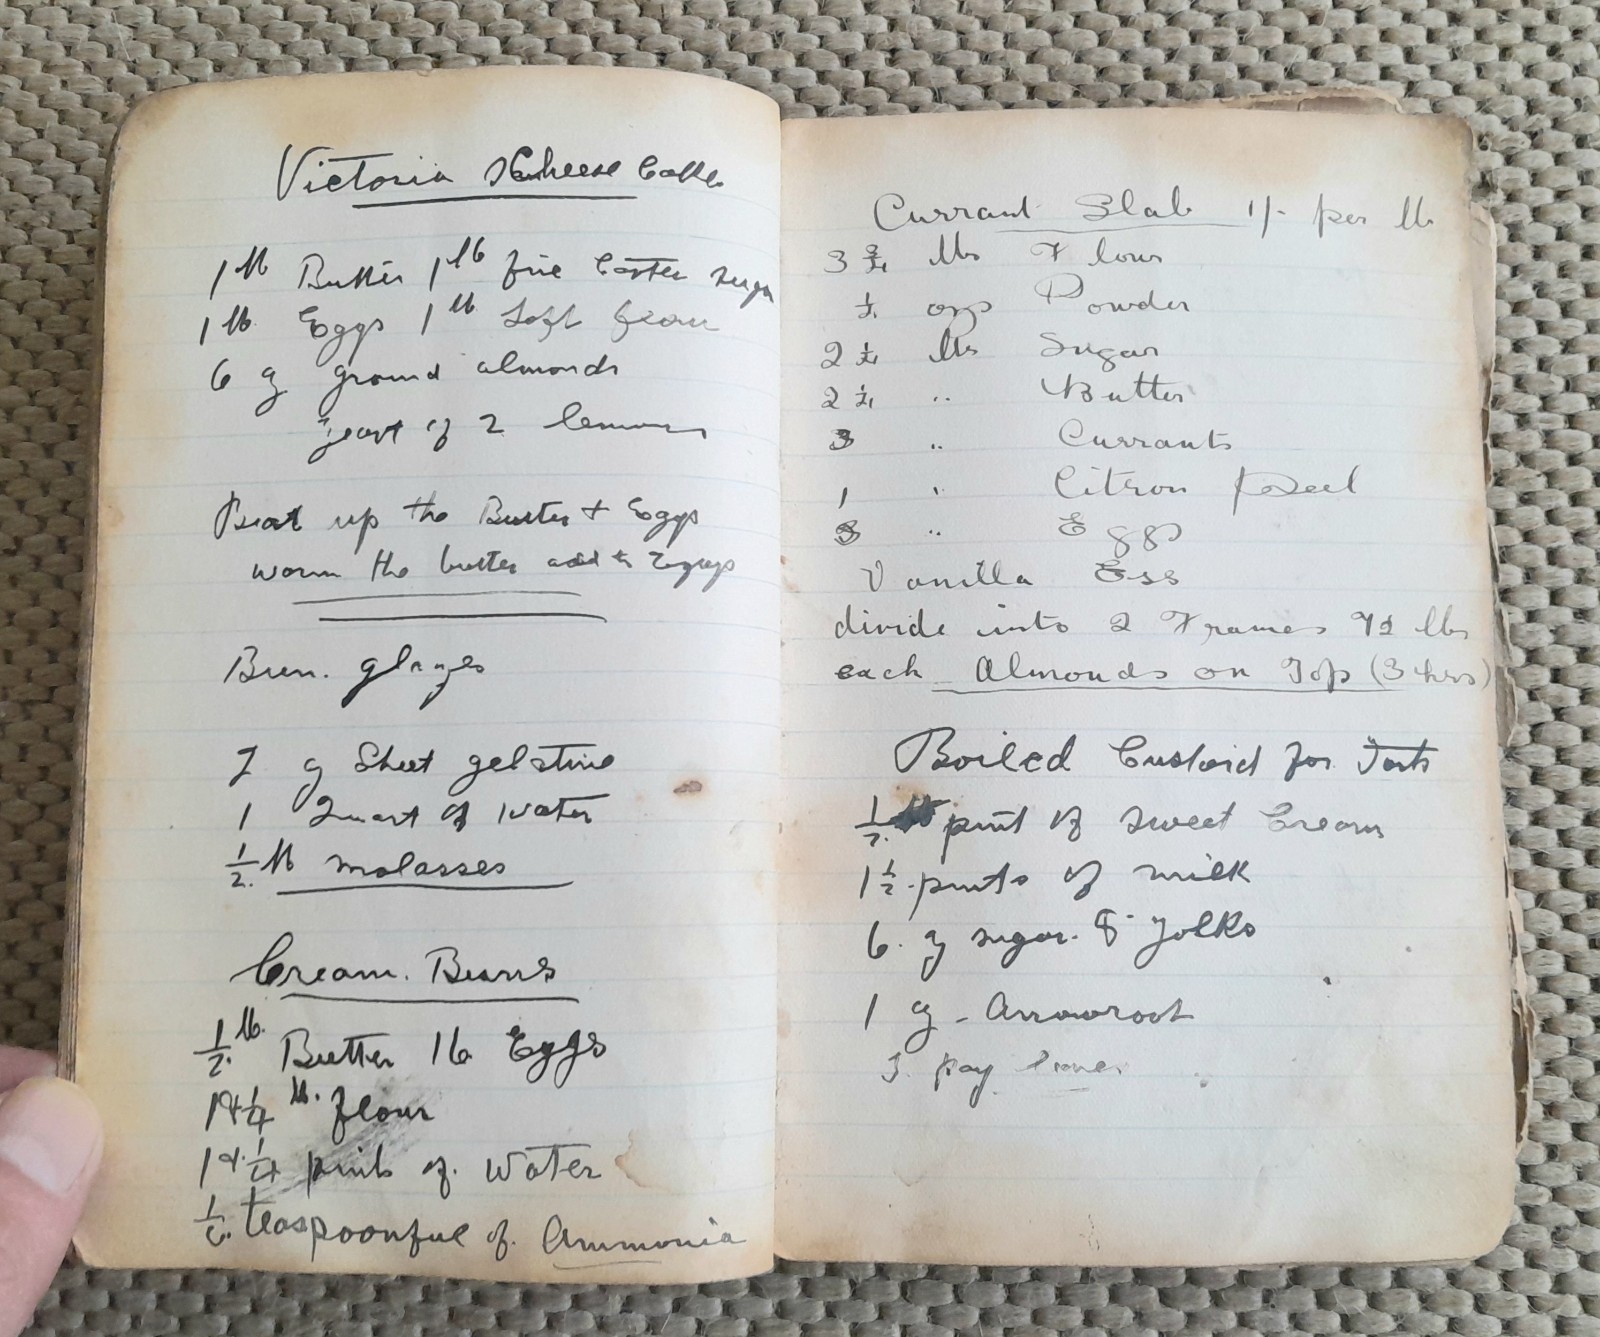 Victoria Cheese Cakes
1 lb Butter 1 lb fine Caster Sugar
1 lb Eggs 1 lb Soft flour
6 oz ground almonds
zest of 2 lemons
Beat up the Butter + Eggs
warm the butter add to Eggs
Bun. glazes
7 oz Sheet gelatine
1 Quart of Water
½ lb molasses
Cream. Buns
½ lb. Butter 16 Eggs
1 & ¼ lb. flour
1 & ¼ pints of water
teaspoonful of. Ammonia
Currant Slab 1/- per lb
3 ¾ lbs Flour
ozs Powder
2 ¼ lbs Sugar
2 ¼ " Butter
3 " Currants
1 " Citron peel
3 " Eggs
Vanilla Ess
divide into 2 Frames 7½ lbs
each Almonds on Top (3 hrs)
Boiled Custard for Tarts
½ pint of sweet Cream
1½ pints of milk
6. oz sugar. 8 yolks
1 oz - Arrowroot
3. bay leaves